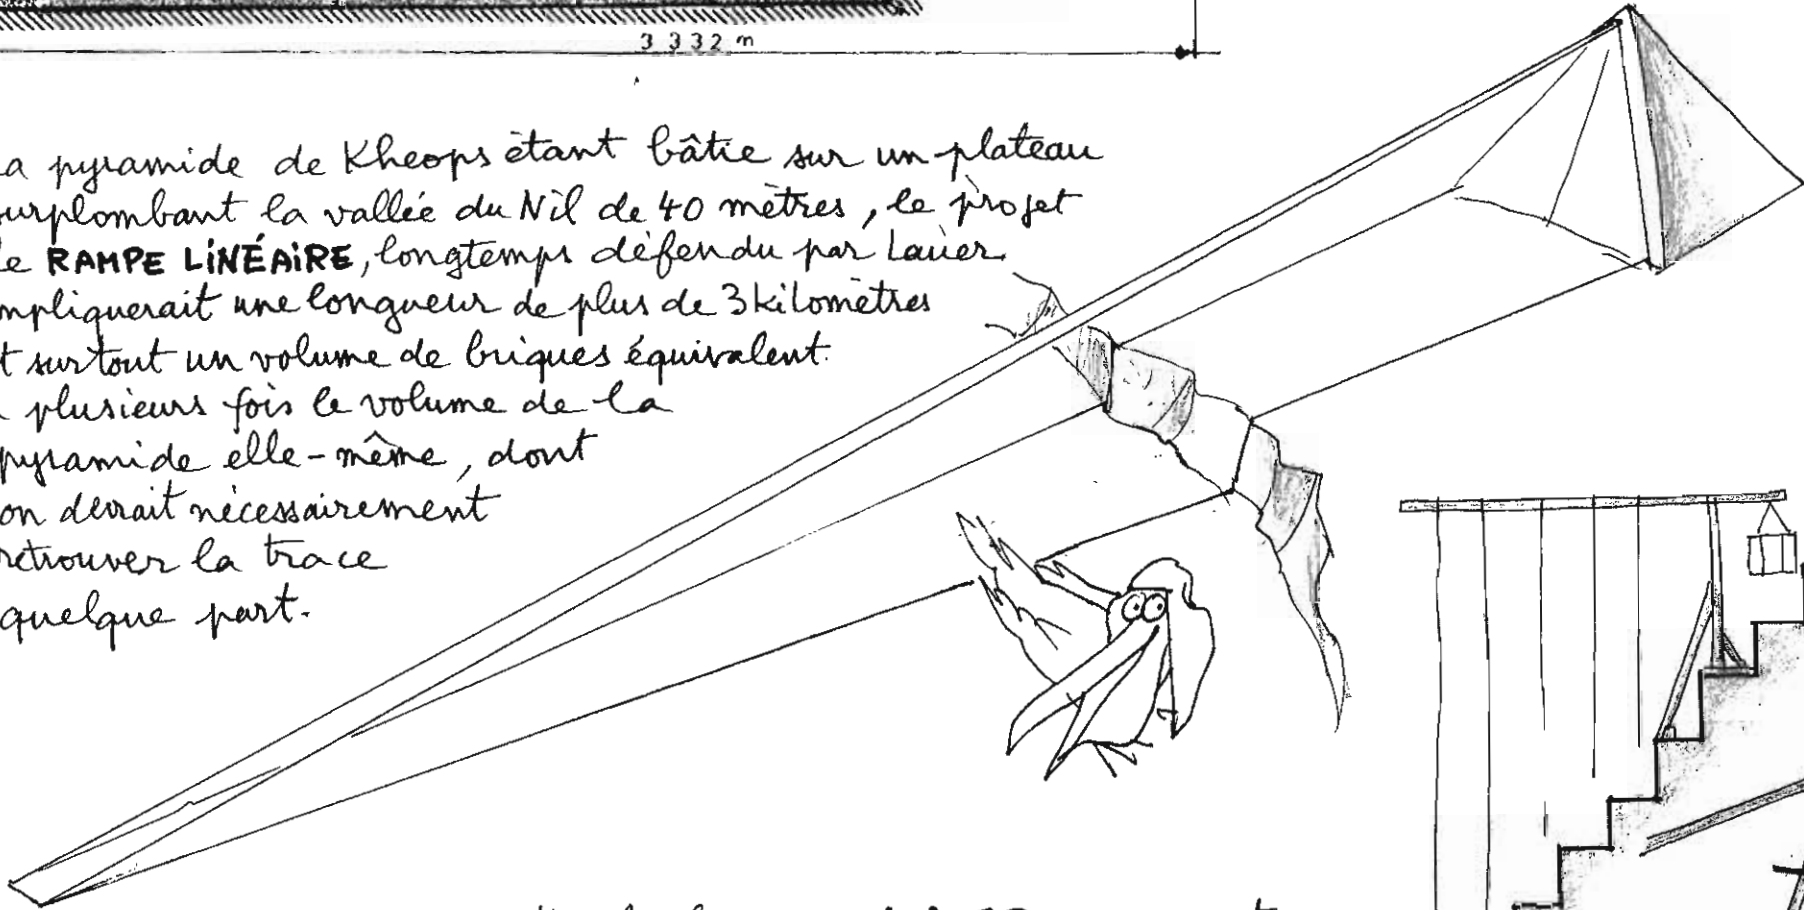 3332 m
a pyramide de Kheops étant bâtie sur un plateau
urplombant la vallée du Nil de 40 mètres, le projet
e RAMPE LINÉAIRE, longtemps défendu par Lauer
mpliquerait une longueur de plus de 3 kilomètres
t surtout un volume de briques équivalent
plusieurs fois le volume de la
pyramide elle-même, dont
on devrait nécessairement
retrouver la trace
quelque part.